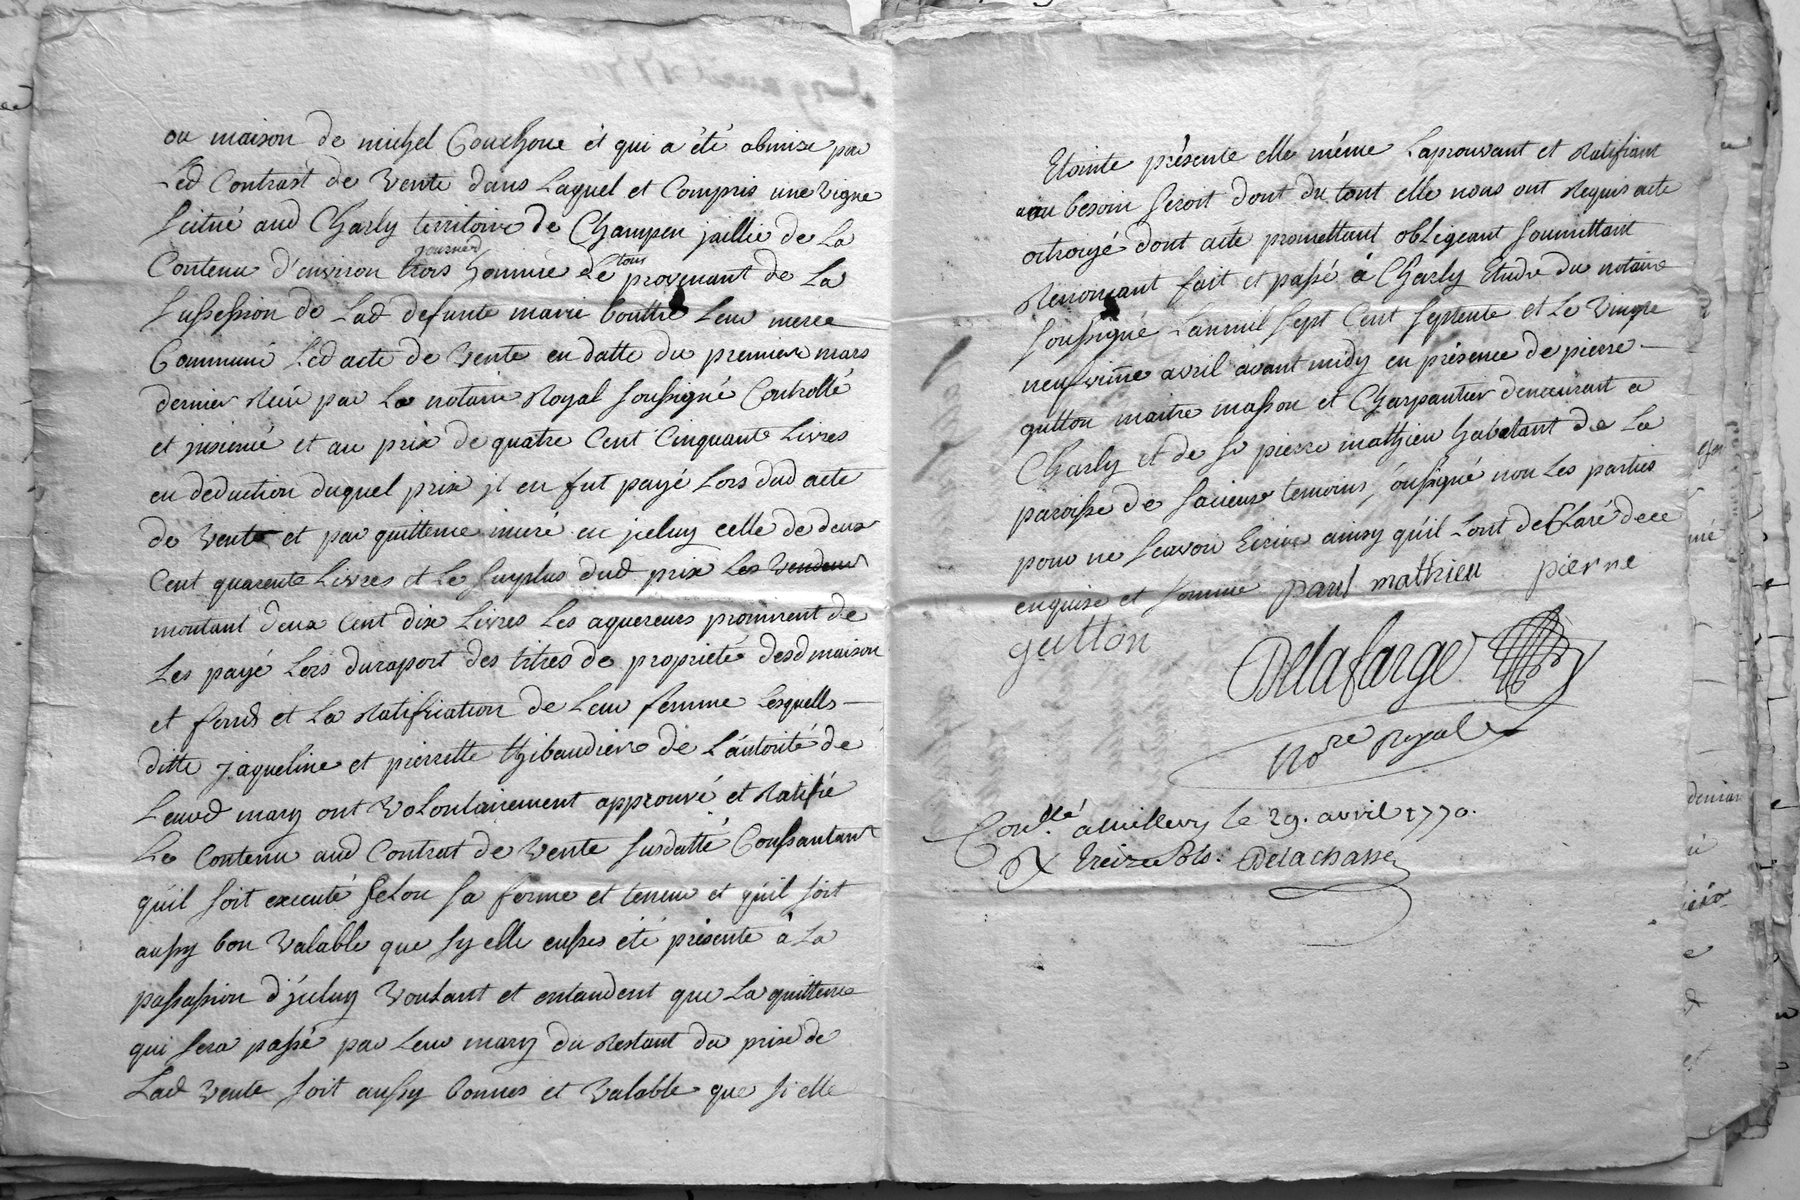 ou maison de michel Couchoue et qui a été obmise par
Led Contrast de Vente dans Laquel et Compris une vigne
scitué aud Charly territoire de Champen jaillie de La
Contenu d'environ trois journed hommée Le tous provenant de La
sussession de Lad defunte marie bouttre Leur meree
Commune Led acte de Vente en datte du premier mars
dernier Reçu par Le notaire Royal soussigné Controllé
et jnsinué et au prix de quatre Cent Cinquante Livres
en deduction duquel prix jl en fut payé Lors dud acte
de vente et par quittence inseré en jceluy celle de deux
Cent quarente Livres et Le surplus dud prix Les vendeur
montant deux Cent dix Livres Les aquereurs promirent de
Les payé Lors duraport des titres de proprieté desd maison
et fonds et La Ratification de Leur femme Lesquells
ditte jaqueline et pierrette thibaudiere de L'autorité de
Leurd mary ont Volontairement approuvé et Ratifié
Le Contenu aud Contrat de Vente susdatté Consantant
qu'il soit executé selon sa forme et teneur et qu'il soit
aussy bon Valable que sy elle eusses été présente à La
passassion d'jceluy Voulant et entandent que La quittence
qui sera passé par Leur mary du Restant du prix de
Lad Vente soit aussy bonnes et Valable que si elle
Etointe présente elle même L'aprouvant et Ratifiant
au besoin seroit dont du tout elle nous ont Requis acte
octroyé dont acte promettant obligeant soumittant
Renonçant fait et passé à Charly Etude du notaire
soussigné L'anmil sept Cent septente et Le Vingte
neufvieme avril avant midy en présence de pierre
gutton maitre masson et Charpantier demeurant a
Charly et de sr pierre mathieu habetant de La
paroisse de temoins soussigné non Les parties
pour ne scavoir Ecrire ainsy qu'il Lont declaré dece
enquise et somme paul mathieu pierre
gutton
Delafarge
Nore Royal
Conllé amillery le 29. avril 1770.
R treize sols. Delachasse